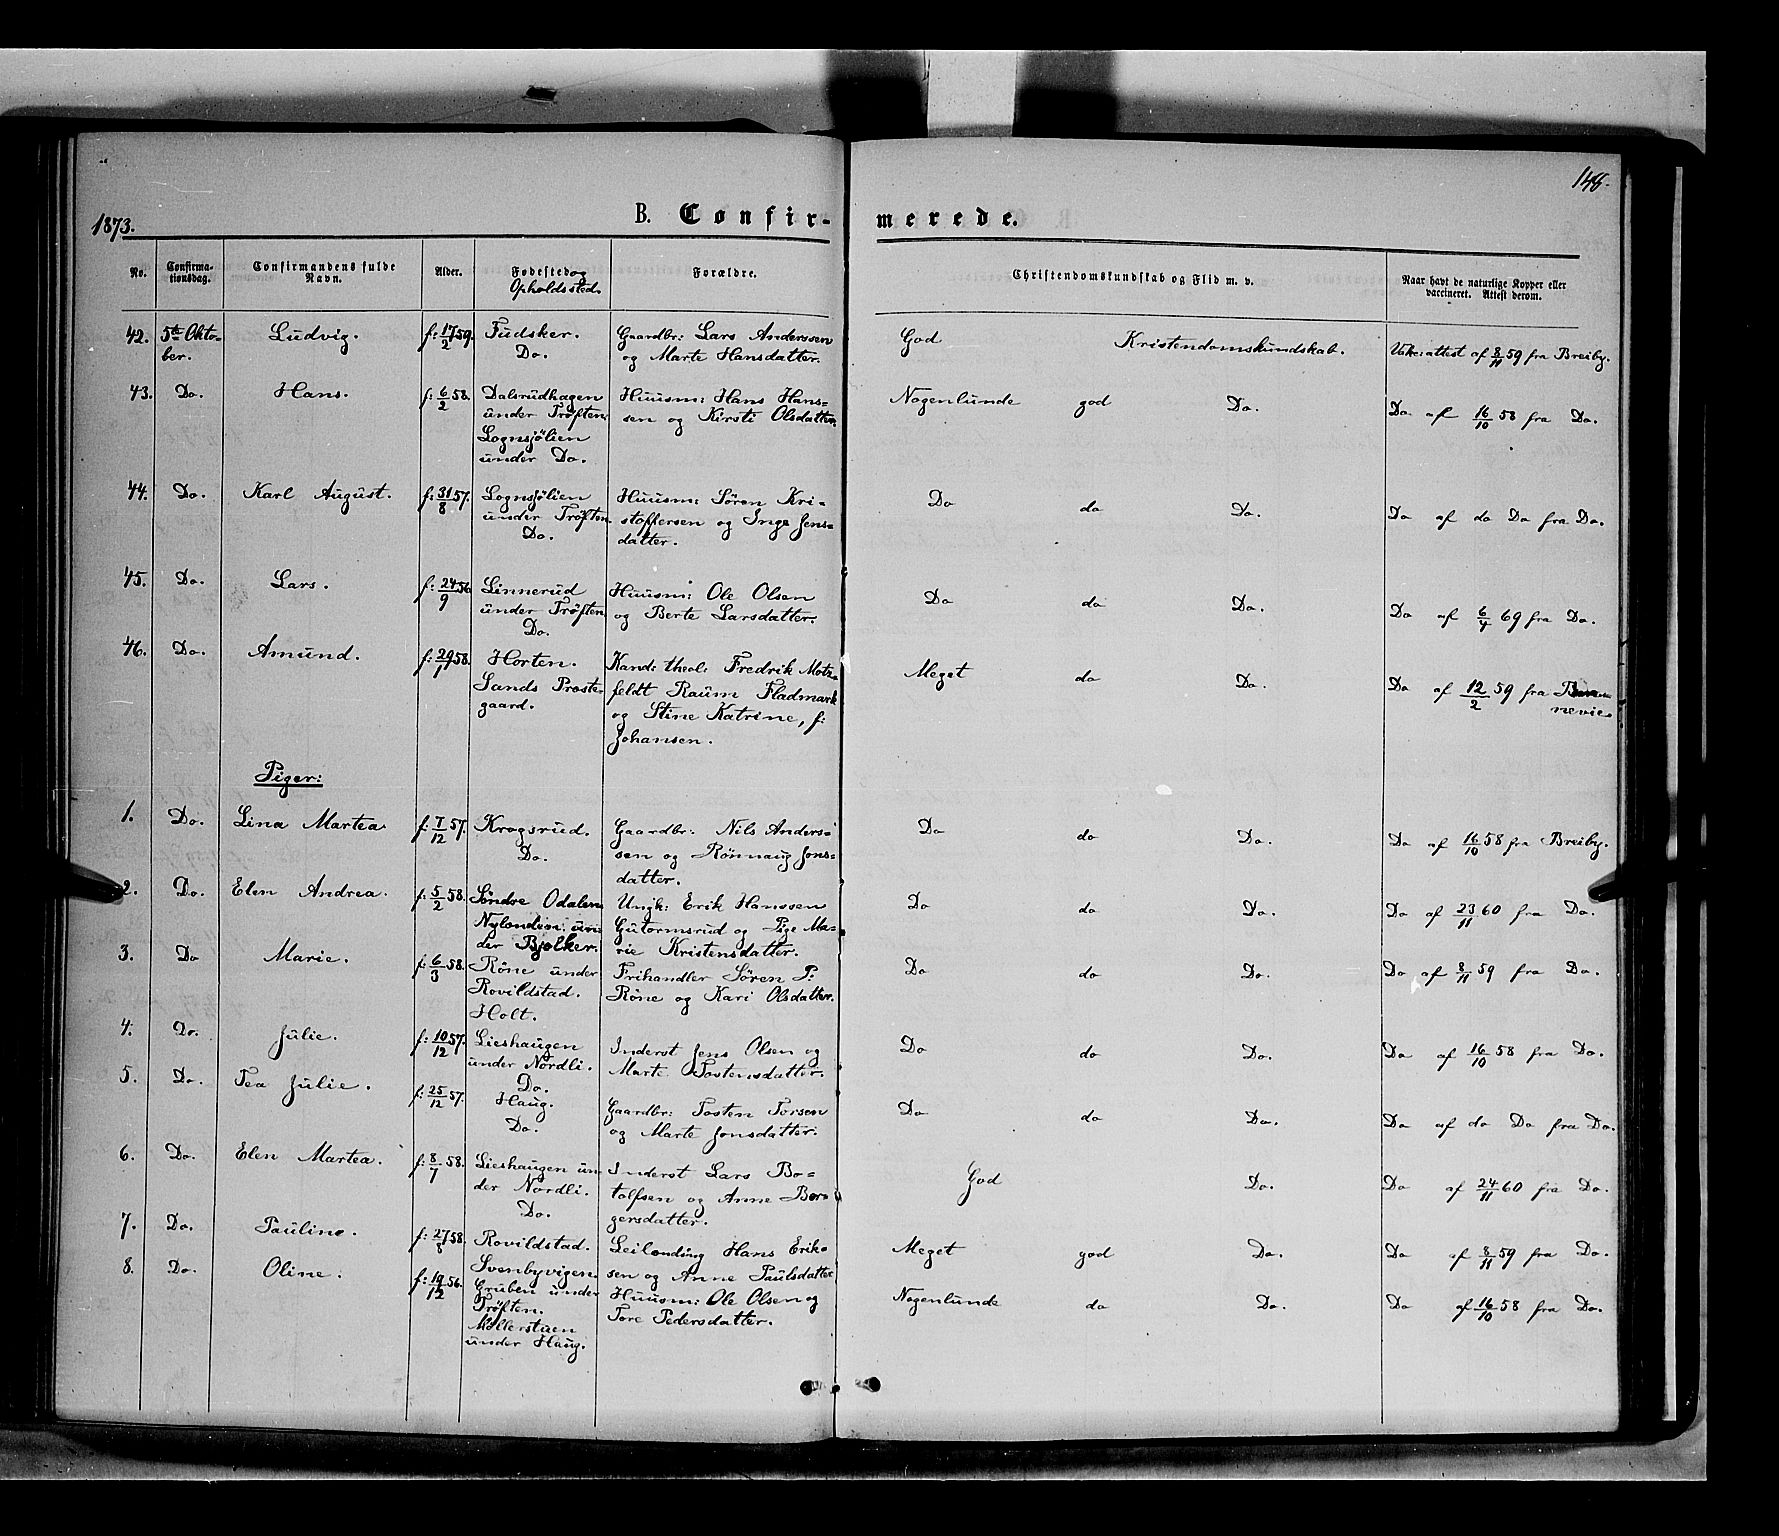 148.
1873.
B. Confirmerede.
No. Confirmationsdag. Confirmandens fulde Navn. Alder. Fødested og Opholdssted. Forældre. Christendomskundskab og Flid m. v. Naar havt de naturlige Kopper eller vaccineret. Attest derom.
42. 5te Oktober. Ludvig. f: 17/2 59. Fudsker. Do. Gaardbr: Lars Anderssen og Marte Hansdatter. God Kristendomskundskab. Vakc: attest af 8/11 59 fra Breiby.
43. Do. Hans. f: 6/2 58. Dalsrudhagen under Trøften. Lognsjölien under Do. Huusm: Hans Hanssen og Kirsti Olsdatter. Nogenlunde god Do. Do. af 16/10 58 fra Do.
44. Do. Karl August. f: 31/8 57. Lognsjölien under Trøften. Do. Huusm: Sören Kristoffersen og Inge Jensdatter. Do do Do. Do af do Do fra Do.
45. Do. Lars. f: 24/9 56 Linnerud under Trøften. Do. Huusm: Ole Olsen og Berte Larsdatter. Do do Do. Do af 6/4 69 fra Do.
46. Do. Amund. f: 29/1 58. Horten. Sands Prestegaard. Kand: theol: Fredrik Motzfeldt Raum Fladmark og Stine Katrine, f: Johansen. Meget do Do. Do af 12/2 59 fra
Piger:
1. Do. Lina Martea f: 7/12 57. Krogsrud. Do. Gaardbr: Nils Anderssen og Rönnaug Jonsdatter. Do do Do. Do af 16/10 58 fra Breiby.
2. Do. Elen Andrea. f: 5/2 58. Söndre Odalen Nylandeie: under Bjølker. Ungk: Erik Hanssen Gutormsrud og Pige Marie Kristensdatter. Do do Do. Do af 23/11 60 fra Do.
3. Do Marie. f: 6/3 58. Röne under Rovildstad. Holt. Frihandler Sören P: Röne og Kari Olsdatter. Do do Do. Do af 8/11 59 fra Do.
4. Do. Julie. f: 10/12 57. Lieshaugen under Nordli. Do. Inderst Jens Olsen og Marte Tostensdatter. Do do Do. Do af 16/10 58 fra Do.
5. Do. Tea Julie. f: 25/12 57. Haug. Do. Gaardbr: Tosten Torsen og Marte Jonsdatter. Do do Do. Do af do Do fra Do.
6. Do. Elen Martea. f: 8/7 58. Lieshaugen under Nordli. Do. Inderst Lars Botolfsen og Anne Borgersdatter. God Do. Do af 24/11 60 fra Do.
7. Do. Pauline. f: 27/8 58. Rovildstad. Svenbyvigen. Leilending Hans Eriksen og Anne Paulsdatter Meget god Do. Do af 8/11 59 fra Do.
8. Do. Oline. f: 19/12 56. Gruben under Trøften. Möllerstuen under Haug. Huusm: Ole Olsen og Tore Pedersdatter. Nogenlunde do Do. Do af 16/10 58 fra Do.